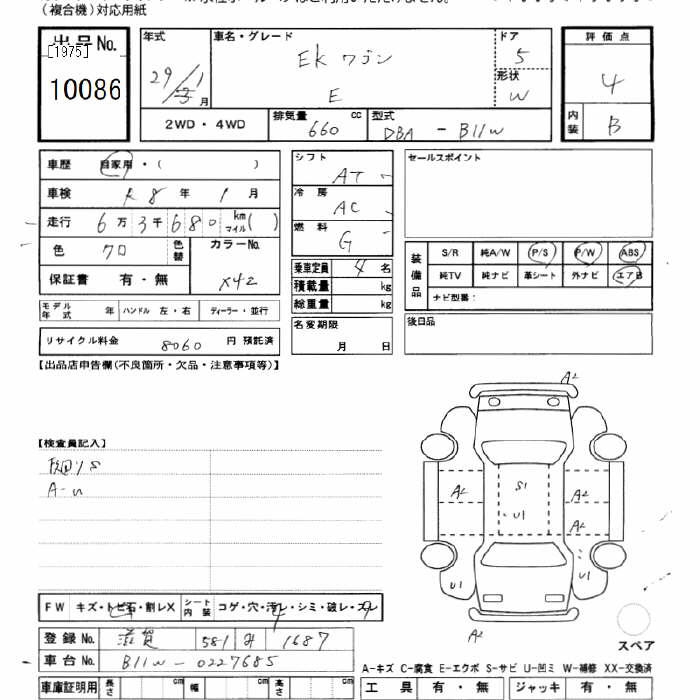 (複合機)対応用紙
出品No.
[1975]
10086
年式
29/1月
車名・グレード
Ek ワゴン
E
ドア
5
形状
W
評価点
4
内装
B
2WD・4WD
排気量
660 cc
型式
DBA - B11W
車歴 自家用・( )
車検 R 8 年 1 月
走行 6万3千680 km マイル( )
色 クロ 色替
カラーNo.
X42
保証書 有・無
モデル年式 年 ハンドル 左・右 ディーラー・並行
リサイクル料金 8060 円 預託済
シフト
AT
冷房
AC
燃料
G
乗車定員 4名
積載量 kg
総重量 kg
名変期限
月 日
セールスポイント
装備品
S/R 純A/W P/S P/W ABS
純TV 純ナビ 革シート 外ナビ エアB
ナビ型番:
後日品
【出品店申告欄(不良箇所・欠品・注意事項等)】
【検査員記入】
A-U
A2
A2 S1 A2
U1 A2
U1 U1
A2
スペア
FW キズ・トビ石・割レX シート内装 コゲ・穴・汚レ・シミ・破レ・スレ
登録No. 滋賀 581 1687
車台No. B11W-0227685
車庫証明用 長さ cm 幅 cm 高さ cm
A-キズ C-腐食 E-エクボ S-サビ U-凹ミ W-補修 XX-交換済
工具 有・無 ジャッキ 有・無